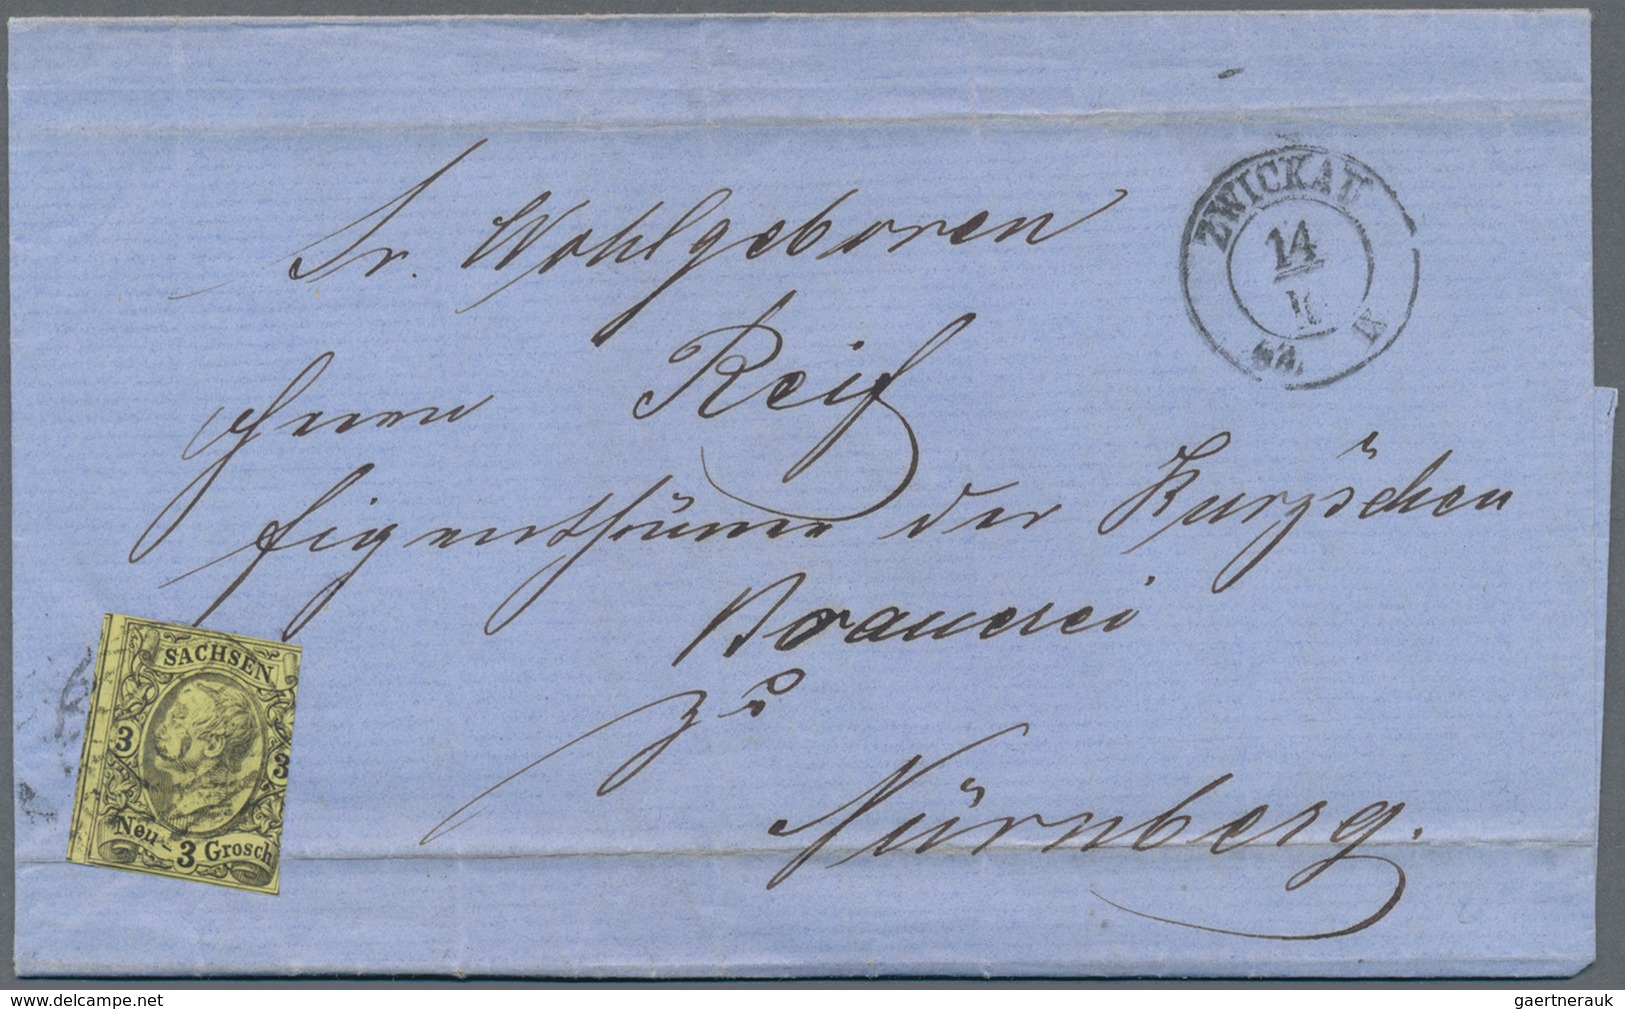 ZWICKAU
14
Sr. Wohlgeboren
Herrn Reif
Eigenthümer der Kurz'schen
Brauerei
zu
Nürnberg.
SACHSEN
3 3
Neu-
3 Grosch
delcampe.net
gaertnerauk